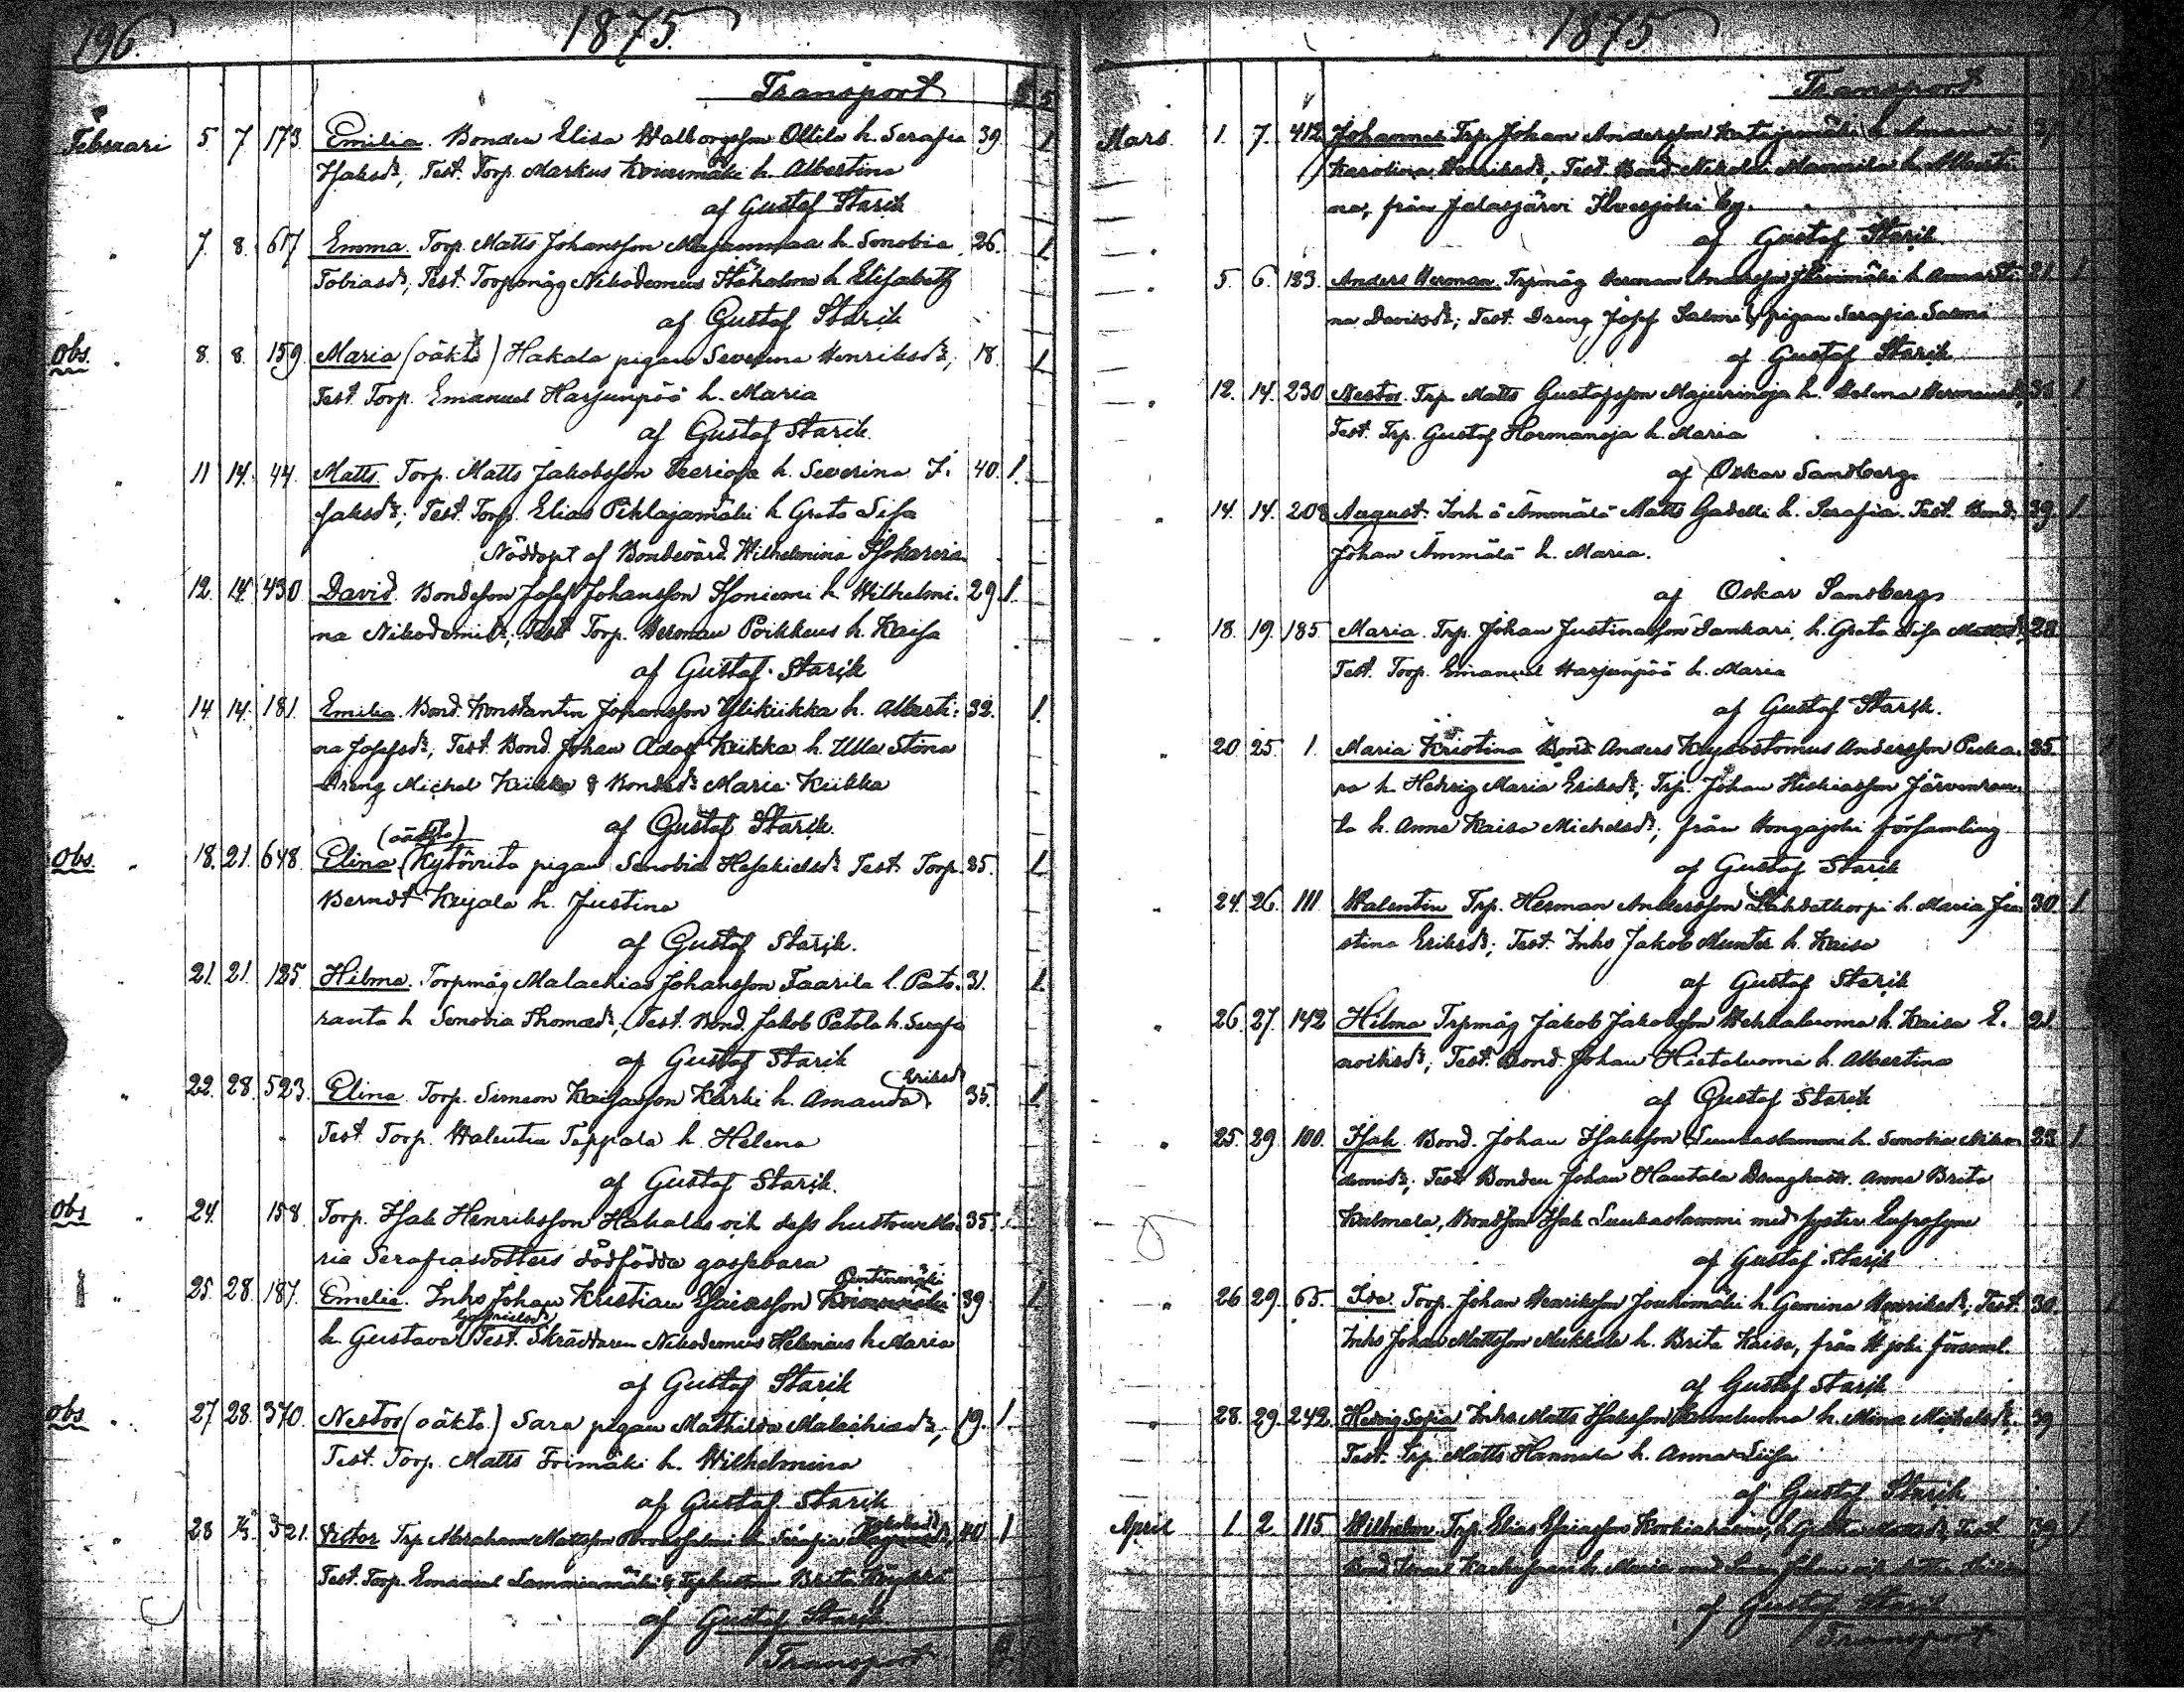 196.
1875.
Transport
Februari 5. 7. 173. Emilia. Bonden Elisa Walborgsson Ollila h. Serafia 39. 1
Isaksdr; Test. Torp. Markus Koivumäki h. Albertina
af Gustaf Starik
" 7. 8. 617 Emma. Torp. Matts Johansson h. Senobia 26. 1
Tobiasdr; Test. Torpmåg Nikodemus h. Elisabeth
af Gustaf Starik
Obs. " 8. 8. 159. Maria (oäkta) Hakala pigan Severina Henriksdr; 18. 1
Test. Torp. Emanuel Harjunpää h. Maria
af Gustaf Starik.
" 11 14. 44. Matts. Torp. Matts Jakobsson h. Severina I. 40. 1.
saksdr; Test. Torp. Elias Pihlajamäki h. Greta Lisa
Nöddöpt af Bondevärd. Wilhelmina
" 12. 14. 430 David. Bondeson Josef Johansson Isoniemi h. Wilhelmi- 29. 1.
na Nikodemidr; Test Torp. Herman Poikkeus h. Kaisa
af Gustaf Starik
" 14. 14. 181. Emilia. Bond. Konstantin Johansson Ylikiikka h. Alberti- 32. 1.
na Josefsdr; Test. Bond. Johan Adolf Kiikka h. Ulla Stina
Dreng Michel Kiikka & Bondedr Maria Kiikka
af Gustaf Starik.
(oäkta)
Obs. " 18. 21. 648. Elina. Kytöviita pigan Senobia Hesekielsdr Test. Torp. 35. 1
Berndt Keijala h. Justina
af Gustaf Starik.
" 21. 21. 125. Hilma. Torpmåg Malachias Johansson Taarila l. Pato- 31. 1.
ranta h Senobia Thomædr, Test. Bond. Jakob Patola h. Serafia
af Gustaf Starik
Eriksdr
" 22. 28. 523. Elina. Torp. Simeon Kaisasson Karhi h. Amanda 35. 1
Test. Torp. Walentin Teppala h. Helena
af Gustaf Starik.
Obs " 24. 158. Torp. Isak Henriksson Hakalas och dess hustrus Ma- 35.
ria Serafiasdotters dödfödda gossebarn
Penttinmäki
" 25. 28. 187. Emelie. Inhs Johan Kristian Esaiasson 39. 1
Gabrielsdr
h. Gustava Test. Skräddaren Nikodemus Helenius h. Maria
af Gustaf Starik
obs " 27 28. 370. Nestor (oäkta) Sara pigan Mathilda Malachiasdr, 19. 1.
Test. Torp. Matts h. Wilhelmina
af Gustaf Starik
" 28 521. Viktor Trp Abraham Mattsson h. Serafia 40. 1
Test. Torp. Emanuel Lamminmäki & Brita
af Gustaf Starik.
Transport
1875
Transport
Mars. 1. 7. 412 Johannes Trp. Johan Andersson Katajamäki h. Amanda
Karolina Henriksdr, Test. Bond. Nikolai Mannila h. Alberti-
na, från Jalasjärvi Ilvesjoki by.
af Gustaf Starik
" 5. 6. 183. Anders Herman. Trpmåg Herman Andersson h. Anna Sti- 21. 1
na Davidsdr; Test. Dreng Josef Salmi & pigan Serafia Salmi
af Gustaf Starik
" 12. 14. 230 Nestor. Trp. Matts Gustafsson h. Helena Hermansdr, 36 1
Test. Trp. Gustaf Hormanoja h. Maria
af Oskar Sandberg
" 14. 14. 208 August. Inh. å Ämmälä Matts Gadelli h. Serafia. Test. Bond. 39. 1
Johan Ämmälä h. Maria.
af Oskar Sandberg
" 18. 19. 185 Maria. Trp. Johan Justinasson Sankari, h. Greta Lisa 28
Test. Torp. Emanuel Harjunpää h. Maria
af Gustaf Starik.
" 20. 25. 1. Maria Kristina Bond. Anders Krysostomus Andersson 25.
h. Hedvig Maria Eriksdr; Trp. Johan Hiskiasson
la h. Anna Kaisa Michelsdr; från Hongajoki församling
af Gustaf Starik
" 24. 26. 111. Walentin Trp. Herman Andersson Lähdekorpi h. Maria Ju- 30. 1
stina Eriksdr; Test. Inhs Jakob Munter h. Kaisa
af Gustaf Starik
" 26. 27. 142 Hilma Trpmåg Jakob Jakobsson h. Kaisa E. 21
noiksdr; Test. Bond. Johan Hietaluoma h. Albertina
af Gustaf Starik
" 25. 29. 100. Isak. Bond. Johan Isaksson Luukaslammi h. Senobia Niko- 23 1
demidr; Test. Bonden Johan Hautala Anna Brita
Isak Luukaslammi med syster
af Gustaf Starik
" 26 29. 65. Ida. Torp. Johan Henriksson Joukimäki h. Gemina Henriksdr; Test. 30.
Inhs Johan Mattsson h. Brita Kaisa, från församl.
af Gustaf Starik
" 28. 29. 242. Hedvig Sofia Inhs Matts Isaksson h. Mina Michelsdr. 39
Test. Trp. Matts Hannula h. Anna Liisa
af Gustaf Starik
April 1. 2. 115 Wilhelm Trp. Elias Esaiasson h. Test. 39. 1
Bond. h. Maria
af Gustaf Starik
Transport